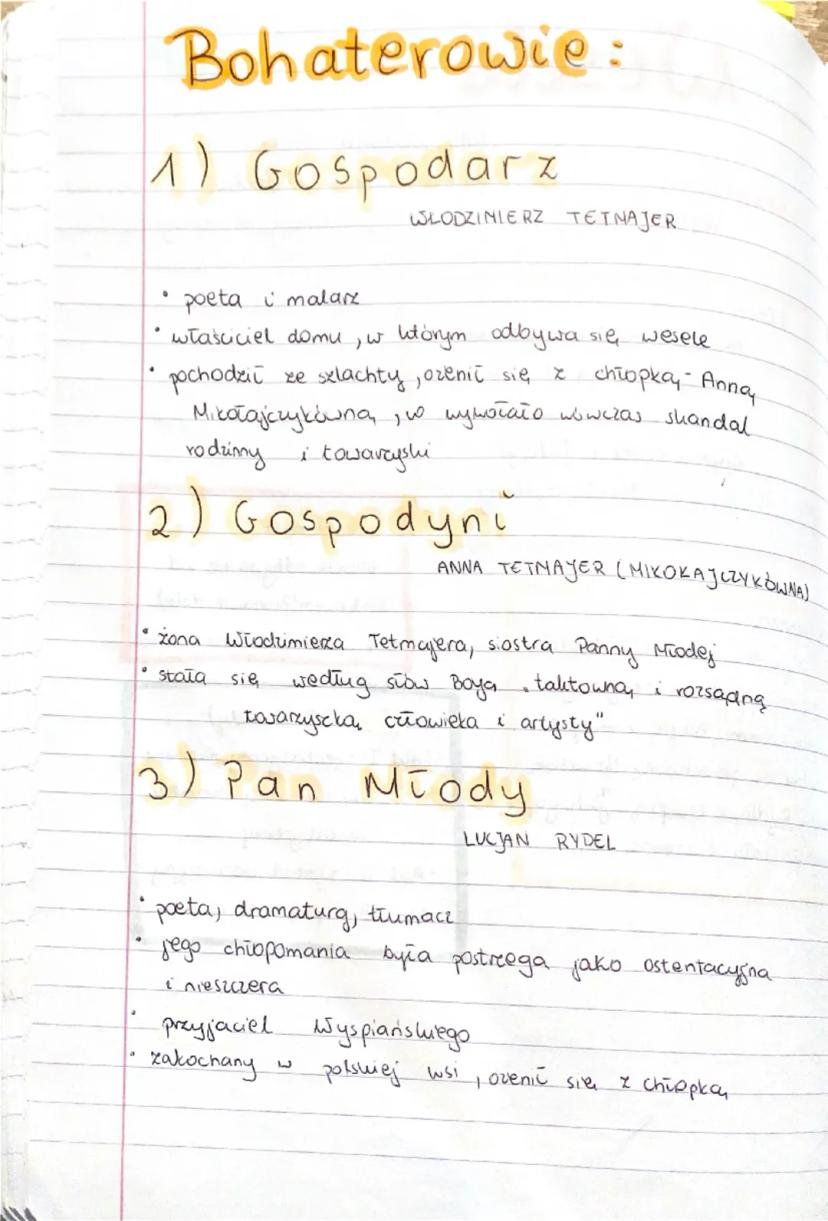 Bohaterowie:
1) Gospodarz
WŁODZIMIERZ TETMAJER
• poeta i malarz
• właściciel domu, w którym odbywa się wesele
• pochodził ze szlachty, ożenił się z chłopką - Anną
Mikołajczykówną, co wywołało wówczas skandal
rodzinny i towarzyski
2) Gospodyni
ANNA TETMAJER (MIKOŁAJCZYKÓWNA)
• żona Włodzimierza Tetmajera, siostra Panny Młodej
• stała się według słów Boya „taktowną i rozsądną
towarzyszką człowieka i artysty"
3) Pan Młody
LUCJAN RYDEL
• poeta, dramaturg, tłumacz
• jego chłopomania była postrzega jako ostentacyjna
i nieszczera
• przyjaciel Wyspiańskiego
• zakochany w polskiej wsi, ożenił się z chłopką